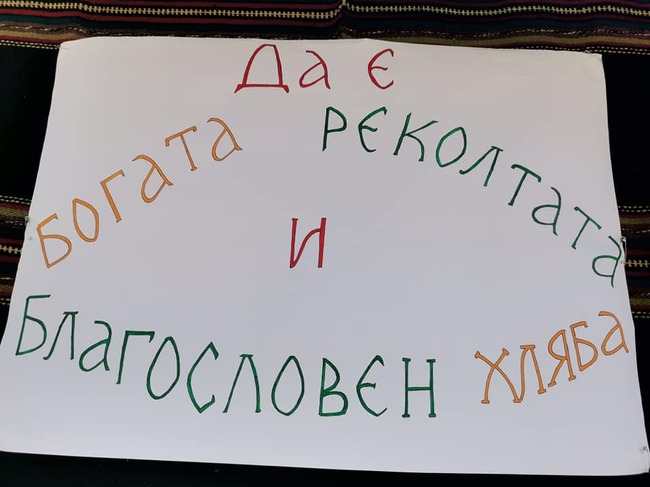 Да є
БОГАТА РЄКОЛТАТА
И
БЛАГОСЛОВЄН ХЛЯБА